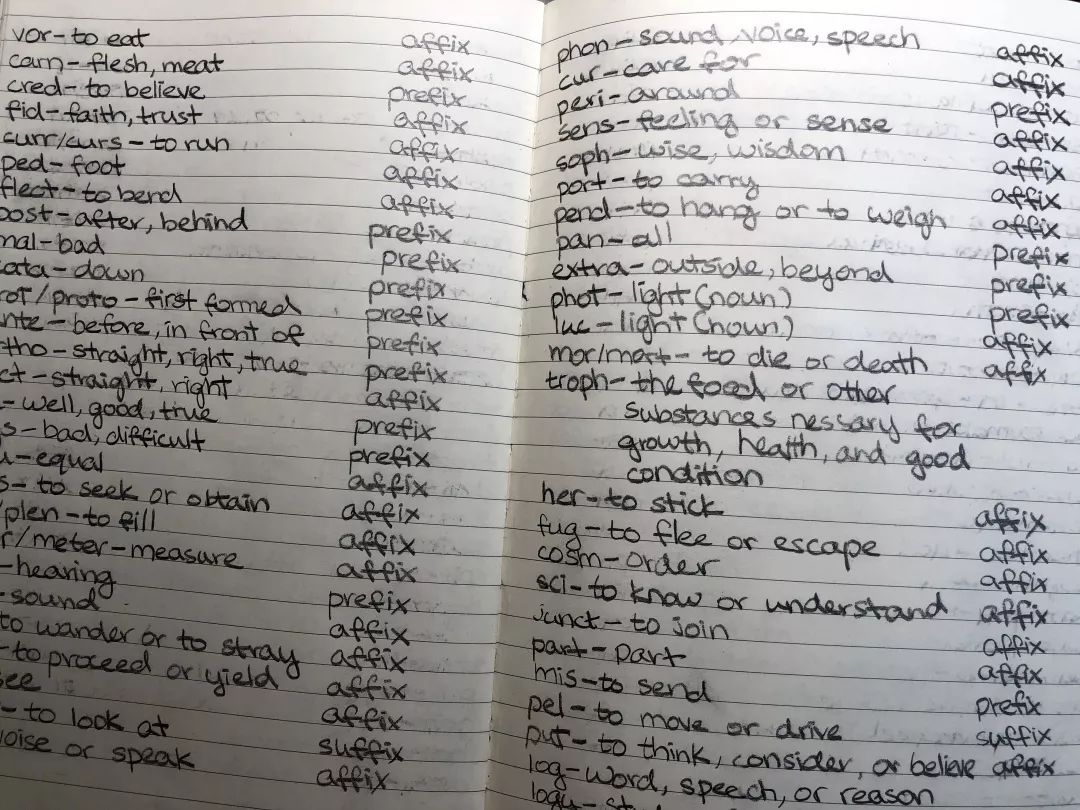 vor-to eat affix
carn-flesh, meat affix
cred-to believe prefix
fid-faith, trust affix
curr/curs-to run affix
ped-foot affix
flect-to bend affix
post-after, behind prefix
mal-bad prefix
ata-down prefix
rot/proto-first formed prefix
nte-before, in front of prefix
tho-straight, right, true prefix
ct-straight, right affix
-well, good, true prefix
s-bad, difficult prefix
u-equal affix
s-to seek or obtain affix
/plen-to fill affix
r/meter-measure affix
-hearing prefix
-sound affix
to wander or to stray affix
-to proceed or yield affix
see affix
-to look at suffix
voice or speak affix
phon-sound, voice, speech affix
cur-care for affix
peri-around prefix
sens-feeling or sense affix
soph-wise, wisdom affix
port-to carry affix
pend-to hang or to weigh affix
pan-all prefix
extra-outside, beyond prefix
phot-light (noun) prefix
luc-light (noun) affix
mor/mort-to die or death affix
troph-the food or other
substances nessary for
growth, health, and good
condition
her-to stick affix
fug-to flee or escape affix
cosm-order affix
sci-to know or understand affix
junct-to join affix
part-part affix
mis-to send prefix
pel-to move or drive suffix
put-to think, consider, or believe affix
log-word, speech, or reason